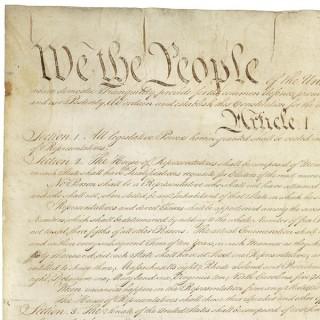 We the People of the Un
insure domestic Tranquility, provide for the common defence, prom
and our Posterity, do ordain and establish this Constitution for the
Article I.
Section. 1. All legislative Powers herein granted shall be vested
of Representatives.
Section. 2. The House of Representatives shall be composed of
in each State shall have Qualifications requisite for Electors of the most num
No Person shall be a Representative who shall not have attained
and who shall not, when elected, be an Inhabitant of that State in which
Representatives and direct Taxes shall be apportioned among the several
Numbers, which shall be determined by adding to the whole Number of free
not taxed, three fifths of all other Persons. The actual Enumeration shall
and within every subsequent Term of ten Years, in such Manner as they
thirty Thousand, but each State shall have at Least one Representative; and
entitled to chuse three, Massachusetts eight, Rhode Island and
eight, Delaware one, Maryland six, Virginia ten, North Carolina five,
When vacancies happen in the Representation from any
The House of Representatives shall chuse their Speaker and other
Section. 3. The Senate of the United States shall be composed of two